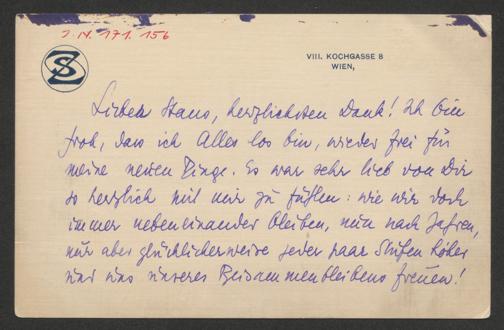 J.N. 171.156
SZ
VIII. KOCHGASSE 8
WIEN,
Lieber Hans, herzlichsten Dank! Ich bin
froh, dass ich Alles los bin, wieder frei für
meine neuen Dinge. Es war sehr lieb von Dir
so herzlich mit mir zu fühlen: wie wir doch
immer nebeneinander bleiben, nun nach Jahren,
nur aber glücklicherweise jeder paar Stufen höher
und uns unseres Beisammenbleibens freuen!